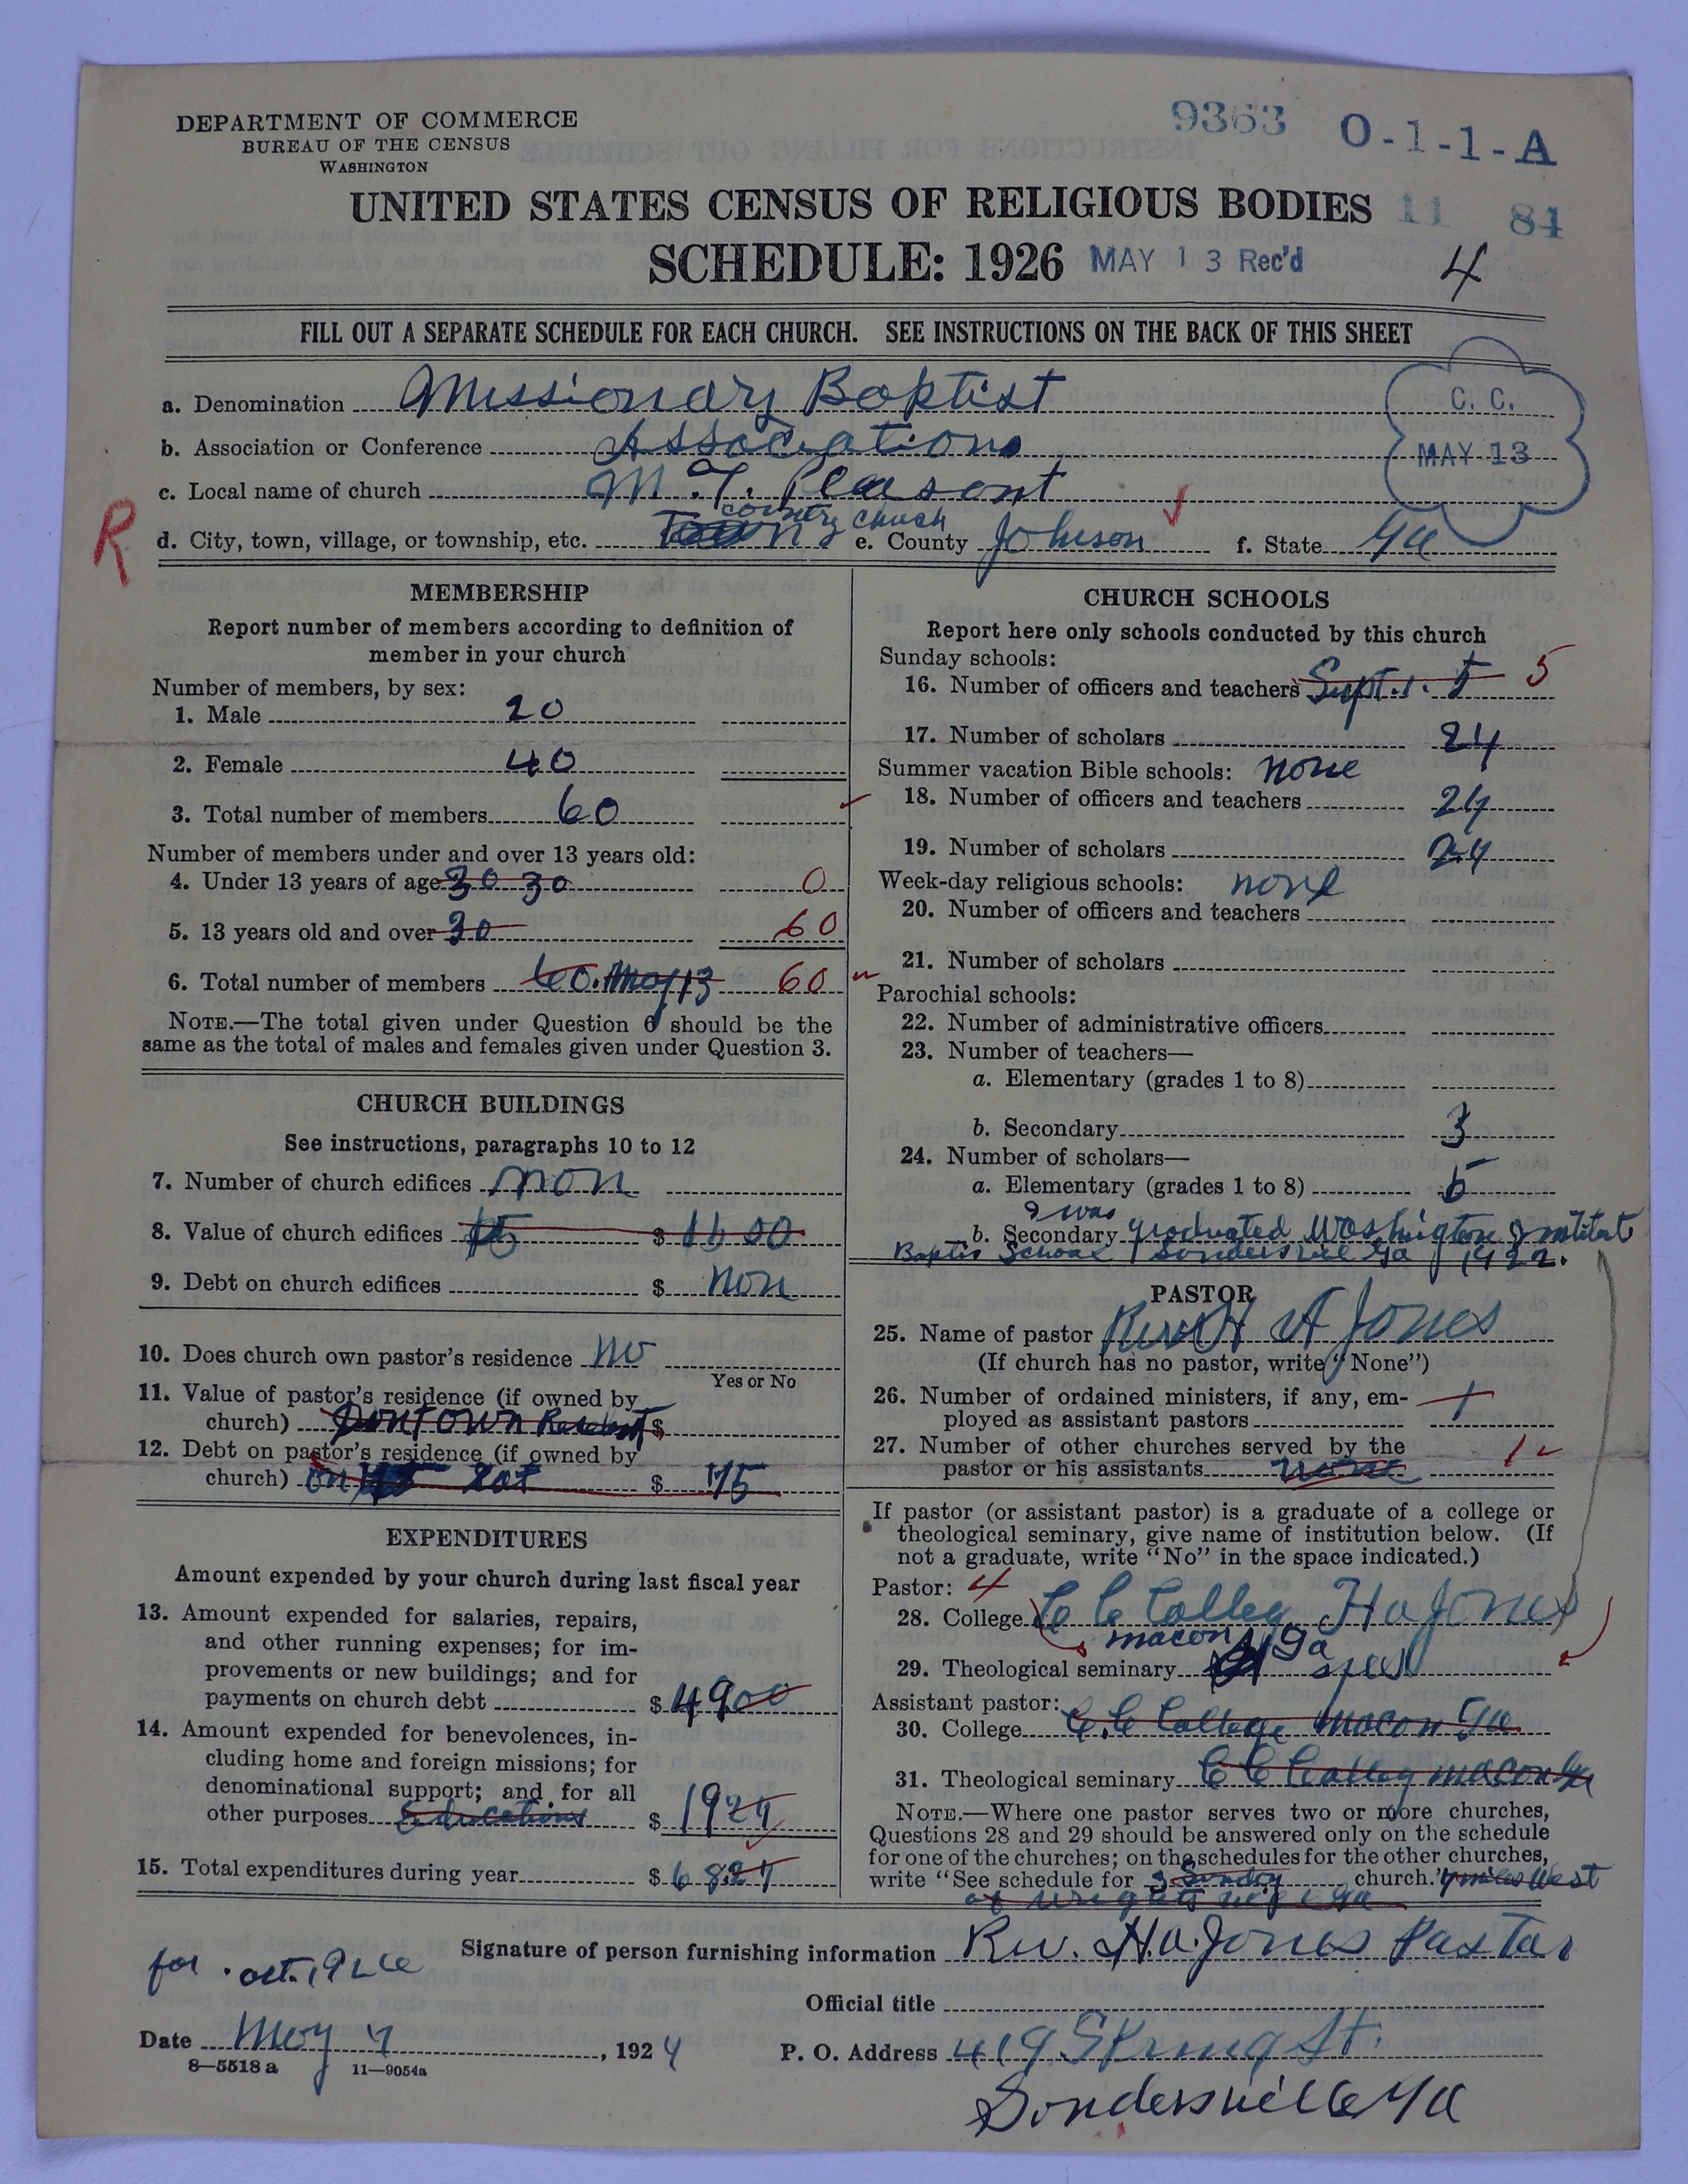 DEPARTMENT OF COMMERCE
BUREAU OF THE CENSUS
WASHINGTON
9363 O-1-1-A
UNITED STATES CENSUS OF RELIGIOUS BODIES 11 84
SCHEDULE: 1926 MAY 13 Rec'd 4
FILL OUT A SEPARATE SCHEDULE FOR EACH CHURCH. SEE INSTRUCTIONS ON THE BACK OF THIS SHEET
a. Denomination Missionary Baptist
C. C.
MAY 13
b. Association or Conference Associations
c. Local name of church M T. Pleasont
country church
R d. City, town, village, or township, etc. Town e. County Johnson f. State Ga
MEMBERSHIP
Report number of members according to definition of
member in your church
Number of members, by sex:
1. Male 20
2. Female 40
3. Total number of members 60
Number of members under and over 13 years old:
4. Under 13 years of age 30 30 0
5. 13 years old and over 30 60
6. Total number of members 60. May 13 60
NOTE.—The total given under Question 6 should be the
same as the total of males and females given under Question 3.
CHURCH BUILDINGS
See instructions, paragraphs 10 to 12
7. Number of church edifices non
8. Value of church edifices $ 1600
9. Debt on church edifices $ non
10. Does church own pastor's residence no
Yes or No
11. Value of pastor's residence (if owned by
church) Dont own $
12. Debt on pastor's residence (if owned by
church) on lot $ 75
EXPENDITURES
Amount expended by your church during last fiscal year
13. Amount expended for salaries, repairs,
and other running expenses; for im-
provements or new buildings; and for
payments on church debt $ 4900
14. Amount expended for benevolences, in-
cluding home and foreign missions; for
denominational support; and for all
other purposes Educations $ 1927
15. Total expenditures during year $ 6827
CHURCH SCHOOLS
Report here only schools conducted by this church
Sunday schools:
16. Number of officers and teachers Supt. 1. 5 5
17. Number of scholars 24
Summer vacation Bible schools: none
18. Number of officers and teachers 24
19. Number of scholars 24
Week-day religious schools: none
20. Number of officers and teachers
21. Number of scholars
Parochial schools:
22. Number of administrative officers
23. Number of teachers—
a. Elementary (grades 1 to 8)
b. Secondary 3
24. Number of scholars—
a. Elementary (grades 1 to 8) 5
I was
b. Secondary graduated Washington Institut
Baptis School Sondersville Ga 1922.
PASTOR
25. Name of pastor Rev H A Jones
(If church has no pastor, write "None")
26. Number of ordained ministers, if any, em-
ployed as assistant pastors 1
27. Number of other churches served by the
pastor or his assistants none 1
If pastor (or assistant pastor) is a graduate of a college or
theological seminary, give name of institution below. (If
not a graduate, write "No" in the space indicated.)
Pastor: 4
28. College C C Colleg H a Jones
macon ga
29. Theological seminary
Assistant pastor:
30. College C. C College macon Ga.
31. Theological seminary C C Colleg macon Ga
NOTE.—Where one pastor serves two or more churches,
Questions 28 and 29 should be answered only on the schedule
for one of the churches; on the schedules for the other churches,
write "See schedule for 3 Sunday church." 4 miles West
of ga
for . oct. 1926 Signature of person furnishing information Rev. H. a. Jones Pastor
Official title
Date May 7, 1924 P. O. Address 419 Spring St.
8—5518 a 11—9054a
Sondersville Ga